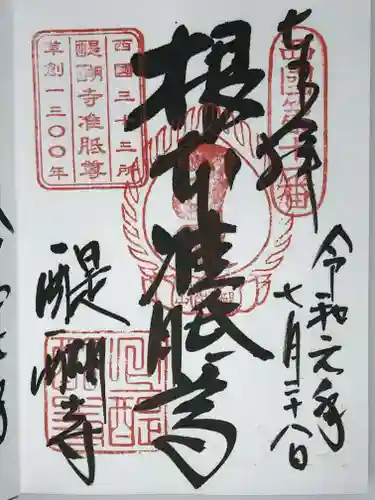 奉拝
西国第十一番
令和元年
七月二十八日
根本准胝尊
西国三十三所
醍醐寺准胝尊
草創一三〇〇年
醍醐寺